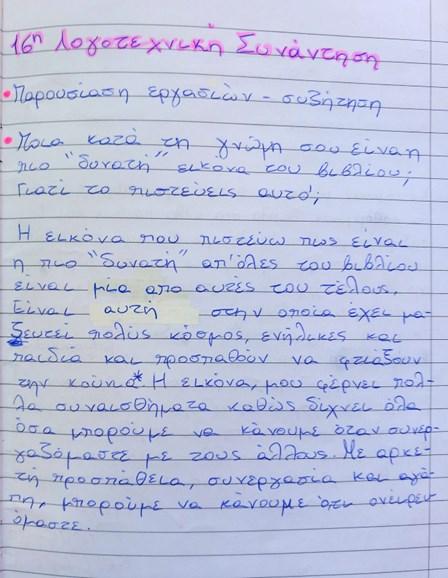 16η Λογοτεχνική Συνάντηση
• Παρουσίαση εργασιών - συζήτηση
• Ποια κατά τη γνώμη σου είναι η
πιο "δυνατή" εικόνα του βιβλίου;
Γιατί το πιστεύεις αυτό;
Η εικόνα που πιστεύω πως είναι
η πιο "δυνατή" απ'όλες του βιβλίου
είναι μία απο αυτές του τέλους.
Είναι αυτή στην οποία έχει μα-
ζευτεί πολύς κόσμος, ενήλικες και
παιδιά και προσπαθούν να φτιάξουν
την κούνια* Η εικόνα, μου φέρνει πολ-
λα συναισθήματα καθώς δίχνει όλα
όσα μπορούμε να κάνουμε όταν συνερ-
γαζόμαστε με τους άλλους. Με αρκε-
τή προσπάθεια, συνεργασία και αγά-
πη, μπορούμε να κάνουμε ότι ονειρευ-
όμαστε.